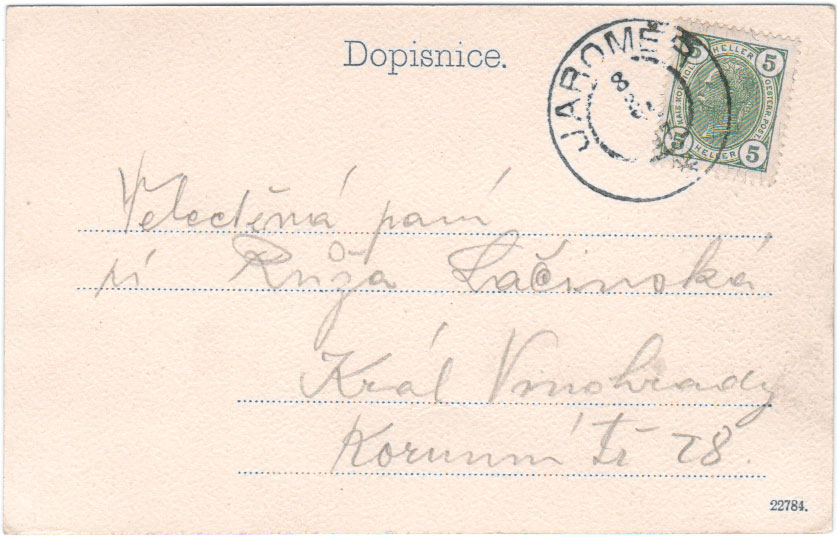 Dopisnice.
JAROMĚŘ
8
5 HELLER 5
KAIS. KÖNIGL. OESTERR. POST
5 HELLER 5
Velectěná paní
pí Růža Lačinská
Král Vinohrady
Korunní tř 28.
22784.